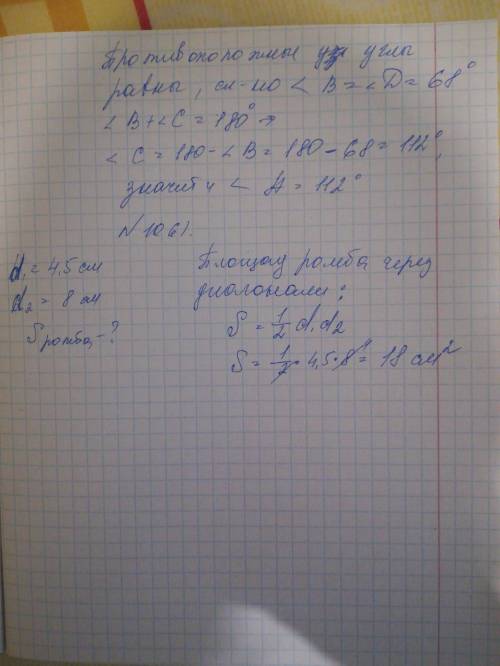 Противоположные углы
равны, сл-но < B = < D = 68°
< B + < C = 180° ⇒
< C = 180 - < B = 180 - 68 = 112°,
значит и < A = 112°
N 10 6).
d₁ = 4,5 см
d₂ = 8 см
Sромба - ?
Площадь ромба через
диагонали:
S = 1/2 d₁ d₂
S = 1/2 · 4,5 · 8⁴ = 18 см²